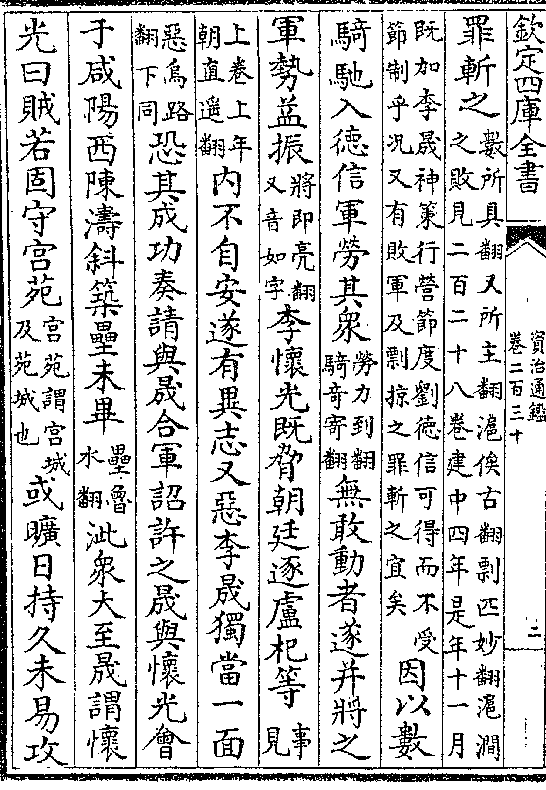 欽定四庫全書
資治通鑑
卷二百三十
二
罪斬之數所具翻又所主翻滬俟古翻剽匹妙翻滬澗之敗見二百二十八卷建中四年是年十一月
既加李晟神策行營節度劉德信可得而不受節制乎况又有敗軍及剽掠之罪斬之宜矣因以數
騎馳入德信軍勞其衆勞力到翻騎奇寄翻無敢動者遂并將之
軍勢益振將即亮翻又音如字李懷光既脅朝廷逐盧杞等事見
上卷上年朝直遥翻內不自安遂有異志又惡李晟獨當一面
惡烏路翻下同恐其成功奏請與晟合軍詔許之晟與懷光會
于咸陽西陳濤斜築壘未畢壘魯水翻泚衆大至晟謂懷
光曰賊若固守宮苑宮苑謂宮城及苑城也或曠日持久未易攻